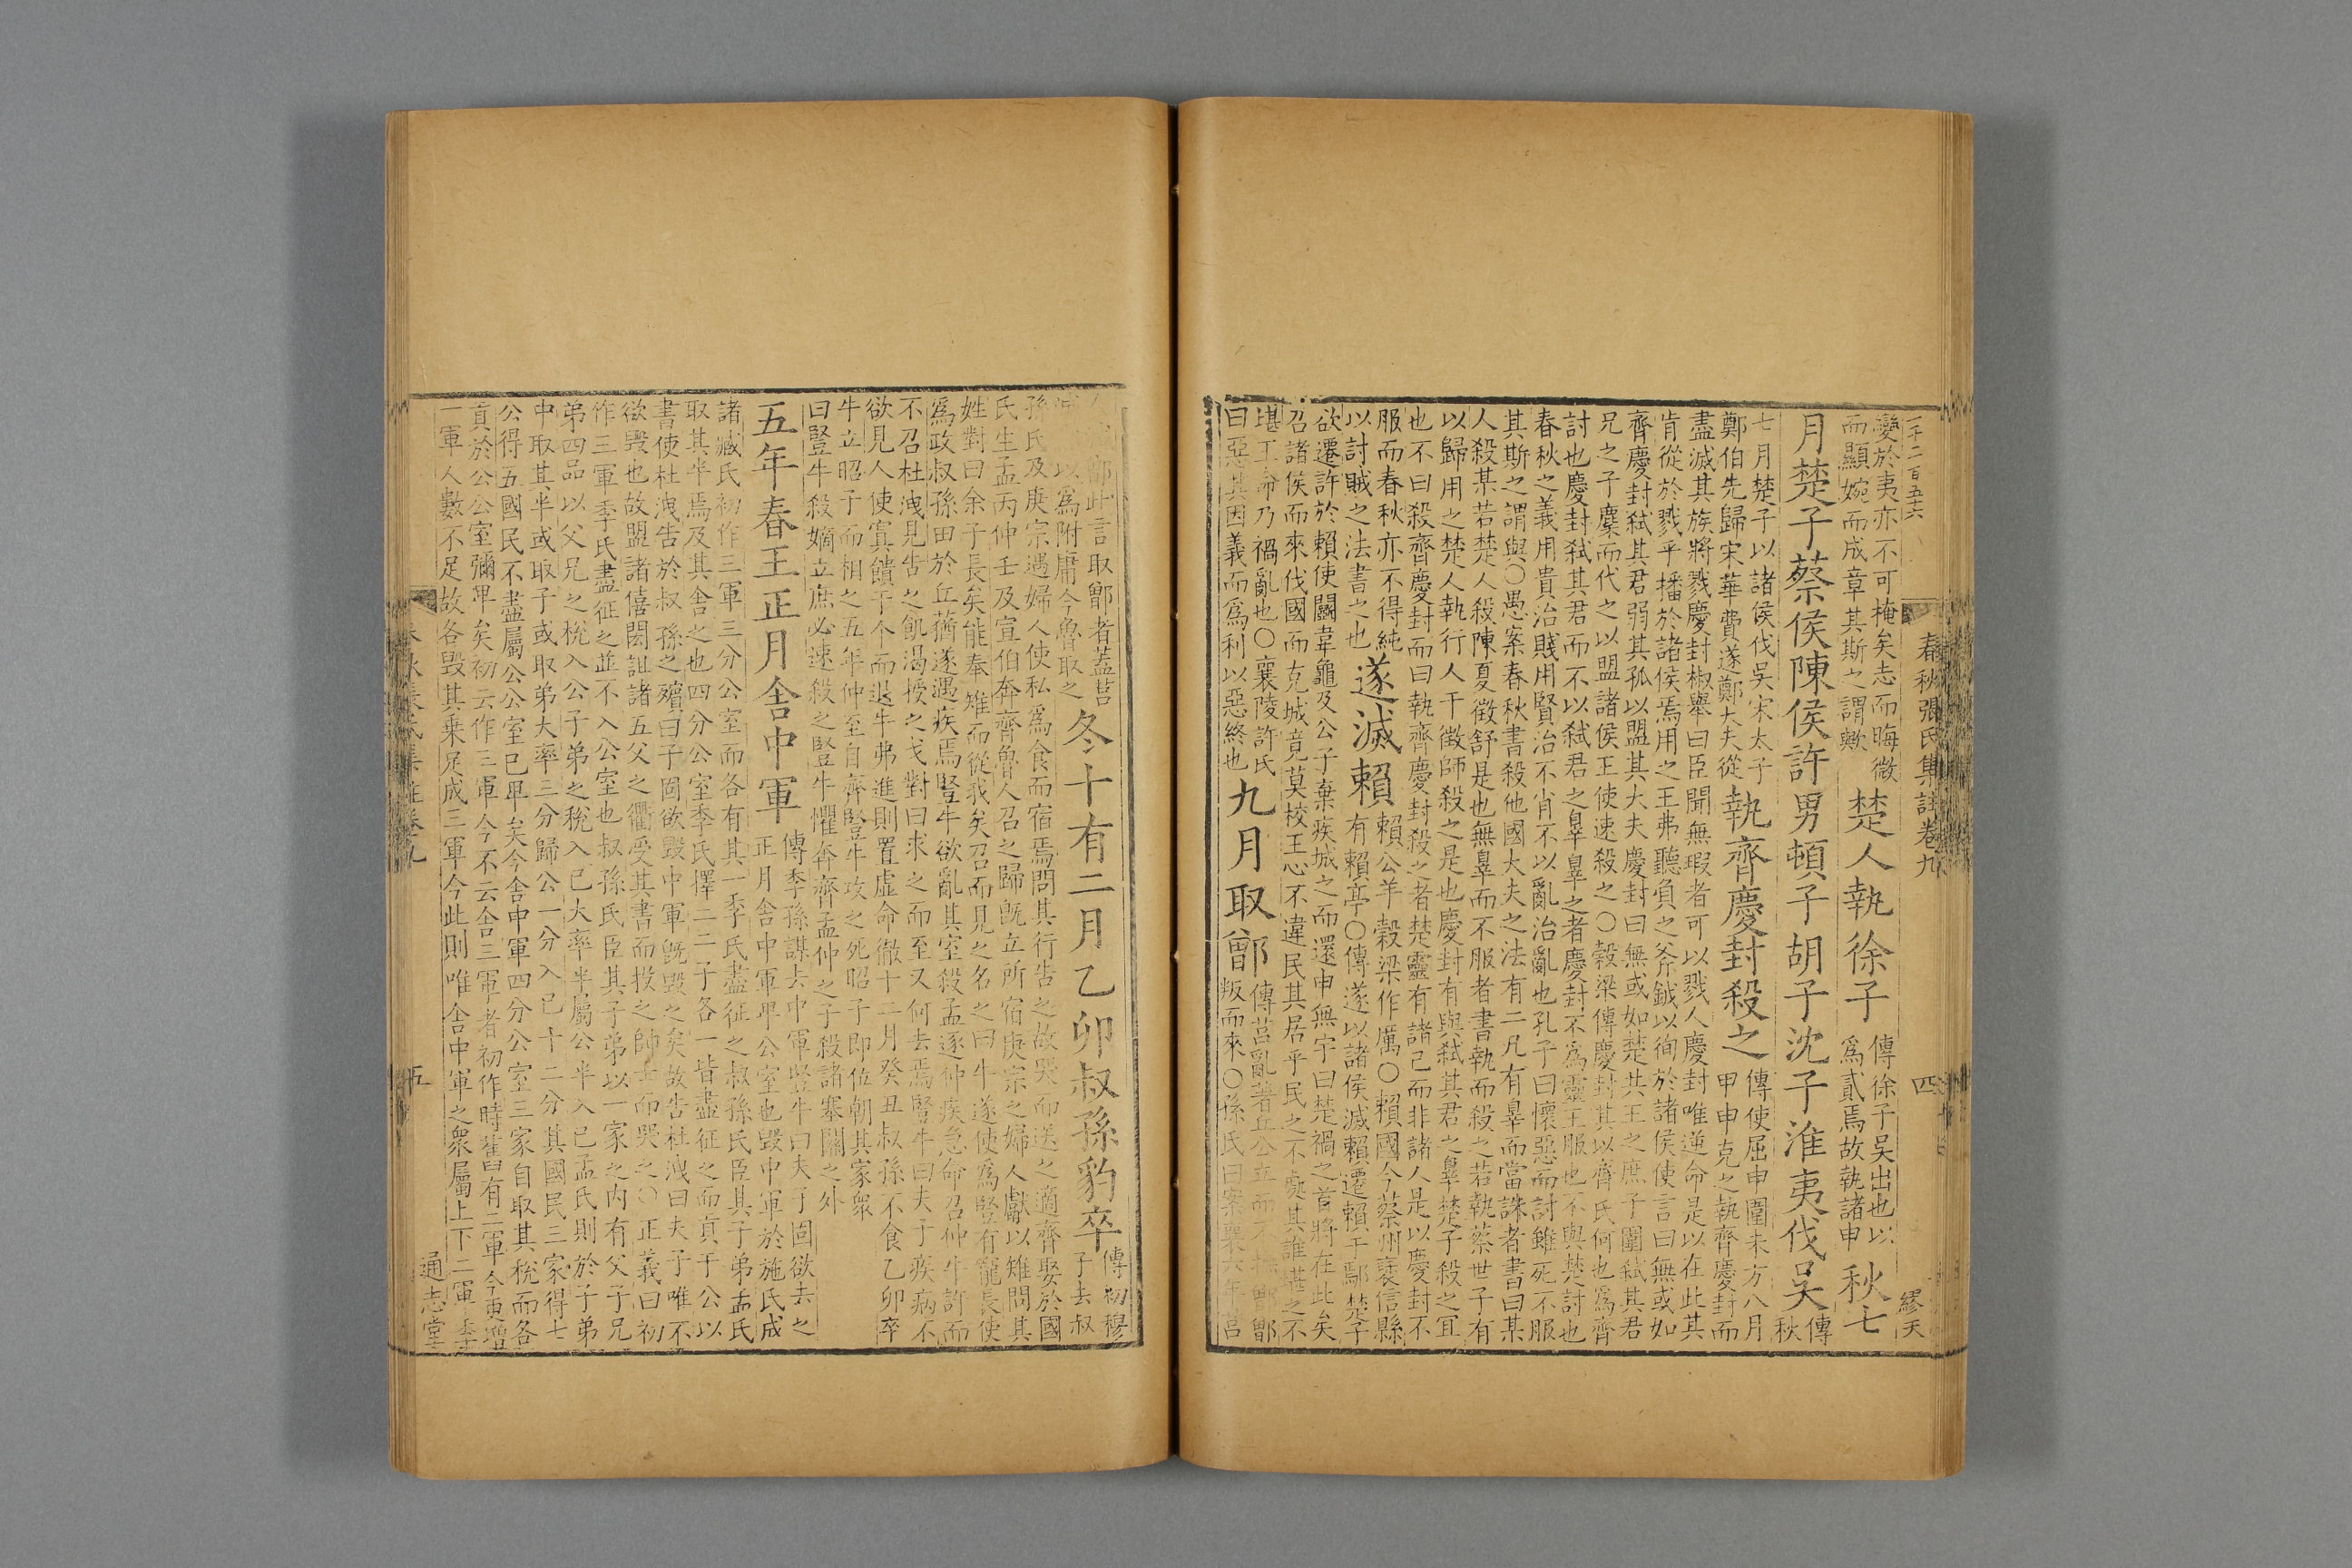 一千二百五六
春秋張氏集註卷九
四
繆天
變於夷亦不可掩矣志而晦微
而顯婉而成章其斯之謂歟
楚人執徐子
傳徐子吳出也以
爲貳焉故執諸申
秋七
月楚子蔡侯陳侯許男頓子胡子沈子淮夷伐吳
傳
秋
七月楚子以諸侯伐吳宋太子
鄭伯先歸宋華費遂鄭大夫從
執齊慶封殺之
傳使屈申圍朱方八月
甲申克之執齊慶封而
盡滅其族將戮慶封椒舉曰臣聞無瑕者可以戮人慶封唯逆命是以在此其
肯從於戮乎播於諸侯焉用之王弗聽負之斧鉞以徇於諸侯使言曰無或如
齊慶封弒其君弱其孤以盟其大夫慶封曰無或如楚共王之庶子圍弒其君
兄之子麇而代之以盟諸侯王使速殺之○穀梁傳慶封其以齊氏何也爲齊
討也慶封弒其君而不以弒君之辠辠之者慶封不爲靈王服也不與楚討也
春秋之義用貴治賤用賢治不肖不以亂治亂也孔子曰懷惡而討雖死不服
其斯之謂與○愚案春秋書殺他國大夫之法有二凡有辠而當誅者書曰某
人殺某若楚人殺陳夏徵舒是也無辠而不服者書執而殺之若執蔡世子有
以歸用之楚人執行人干徵師殺之是也慶封有與弒其君之辠楚子殺之宜
也不曰殺齊慶封而曰執齊慶封殺之者楚靈有諸己而非諸人是以慶封不
服而春秋亦不得純
以討賊之法書之也
遂滅賴
賴公羊穀梁作厲○賴國今蔡州褒信縣
有賴亭○傳遂以諸侯滅賴遷賴于鄢楚子
欲遷許於賴使鬬韋龜及公子棄疾城之而還申無宇曰楚禍之首將在此矣
召諸侯而來伐國而克城竟莫校王心不違民其居乎民之不處其誰堪之不
堪王命乃禍亂也○襄陵許氏
曰惡其因義而爲利以惡終也
九月取鄫
傳莒亂著丘公立而不撫鄫鄫
叛而來○孫氏曰案襄六年莒
鄫此言取鄫者蓋莒
滅以爲附庸今魯取之
冬十有二月乙卯叔孫豹卒
傳初穆
子去叔
孫氏及庚宗遇婦人使私爲食而宿焉問其行告之故哭而送之適齊娶於國
氏生孟丙仲壬及宣伯奔齊魯人召之歸旣立所宿庚宗之婦人獻以雉問其
姓對曰余子長矣能奉雉而從我矣召而見之名之曰牛遂使爲豎有寵長使
爲政叔孫田於丘蕕遂遇疾焉豎牛欲亂其室殺孟逐仲疾急命召仲牛許而
不召杜洩見告之飢渴授之戈對曰求之而至又何去焉豎牛曰夫子疾病不
欲見人使寘饋于个而退牛弗進則置虛命徹十二月癸丑叔孫不食乙卯卒
牛立昭子而相之五年仲至自齊豎牛攻之死昭子即位朝其家衆
曰豎牛殺嫡立庶必速殺之豎牛懼奔齊孟仲之子殺諸塞關之外
五年春王正月舍中軍
傳季孫謀去中軍豎牛曰夫子固欲去之
正月舍中軍卑公室也毀中軍於施氏成
諸臧氏初作三軍三分公室而各有其一季氏盡征之叔孫氏臣其子弟孟氏
取其半焉及其舍之也四分公室季氏擇二二子各一皆盡征之而貢于公以
書使杜洩告於叔孫之殯曰子固欲毀中軍旣毀之矣故告杜洩曰夫子唯不
欲毀也故盟諸僖閎詛諸五父之衢受其書而投之帥士而哭之○正義曰初
作三軍季氏盡征之並不入公室也叔孫氏臣其子弟以一家之內有父子兄
弟四品以父兄之稅入公子弟之稅入己大率半屬公半入己孟氏則於子弟
中取其半或取子或取弟大率三分歸公一分入己十二分其國民三家得七
公得五國民不盡屬公公室已卑矣今舍中軍四分公室三家自取其稅而各
貢於公公室彌卑矣初云作三軍今不云舍三軍者初作時舊有二軍今更增
一軍人數不足故各毀其乘足成三軍今此則唯舍中軍之衆屬上下二軍季
春秋張氏集註卷九
五
通志堂